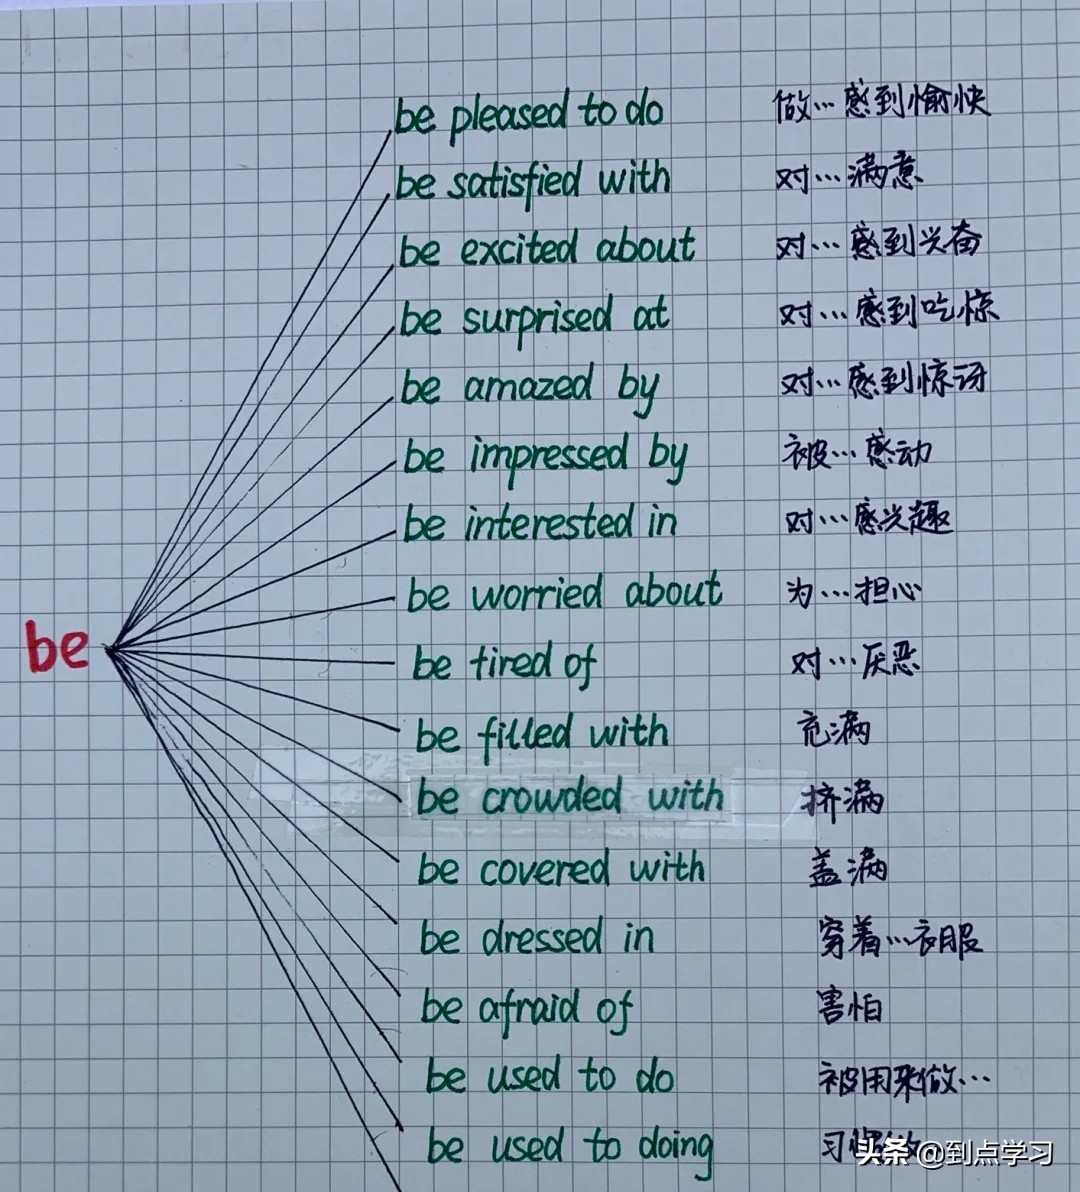 be pleased to do 做…感到愉快
be satisfied with 对…满意
be excited about 对…感到兴奋
be surprised at 对…感到吃惊
be amazed by 对…感到惊讶
be impressed by 被…感动
be interested in 对…感兴趣
be worried about 为…担心
be
be tired of 对…厌恶
be filled with 充满
be crowded with 挤满
be covered with 盖满
be dressed in 穿着…衣服
be afraid of 害怕
be used to do 被用来做…
be used to doing 习惯做
头条 @到点学习